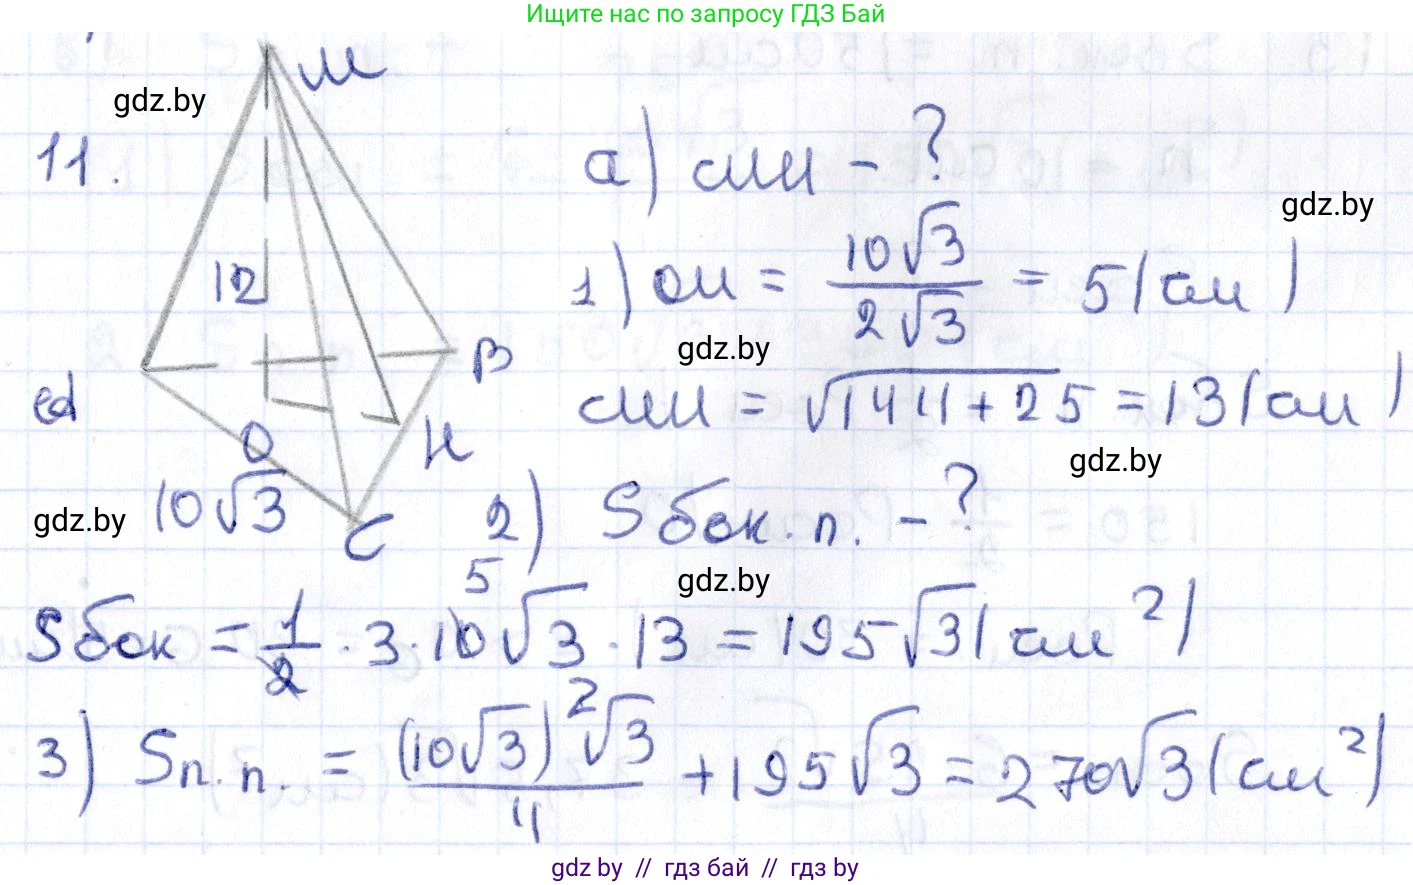 Ищите нас по запросу ГДЗ Бай
M
gdz.by
11.
а) MH - ?
gdz.by
12
1) OH = 10√3 / 2√3 = 5 (см)
gdz.by
B
A
MH = √144 + 25 = 13 (см)
O
H
gdz.by
10√3
gdz.by
C
2) Sбок. п. - ?
gdz.by
Sбок = 1/2 · 3 · 10 5 √3 · 13 = 195√3 (см²)
3) Sп.п. = (10√3)²√3 / 4 + 195√3 = 270√3 (см²)
gdz.by // гдз бай // гдз by